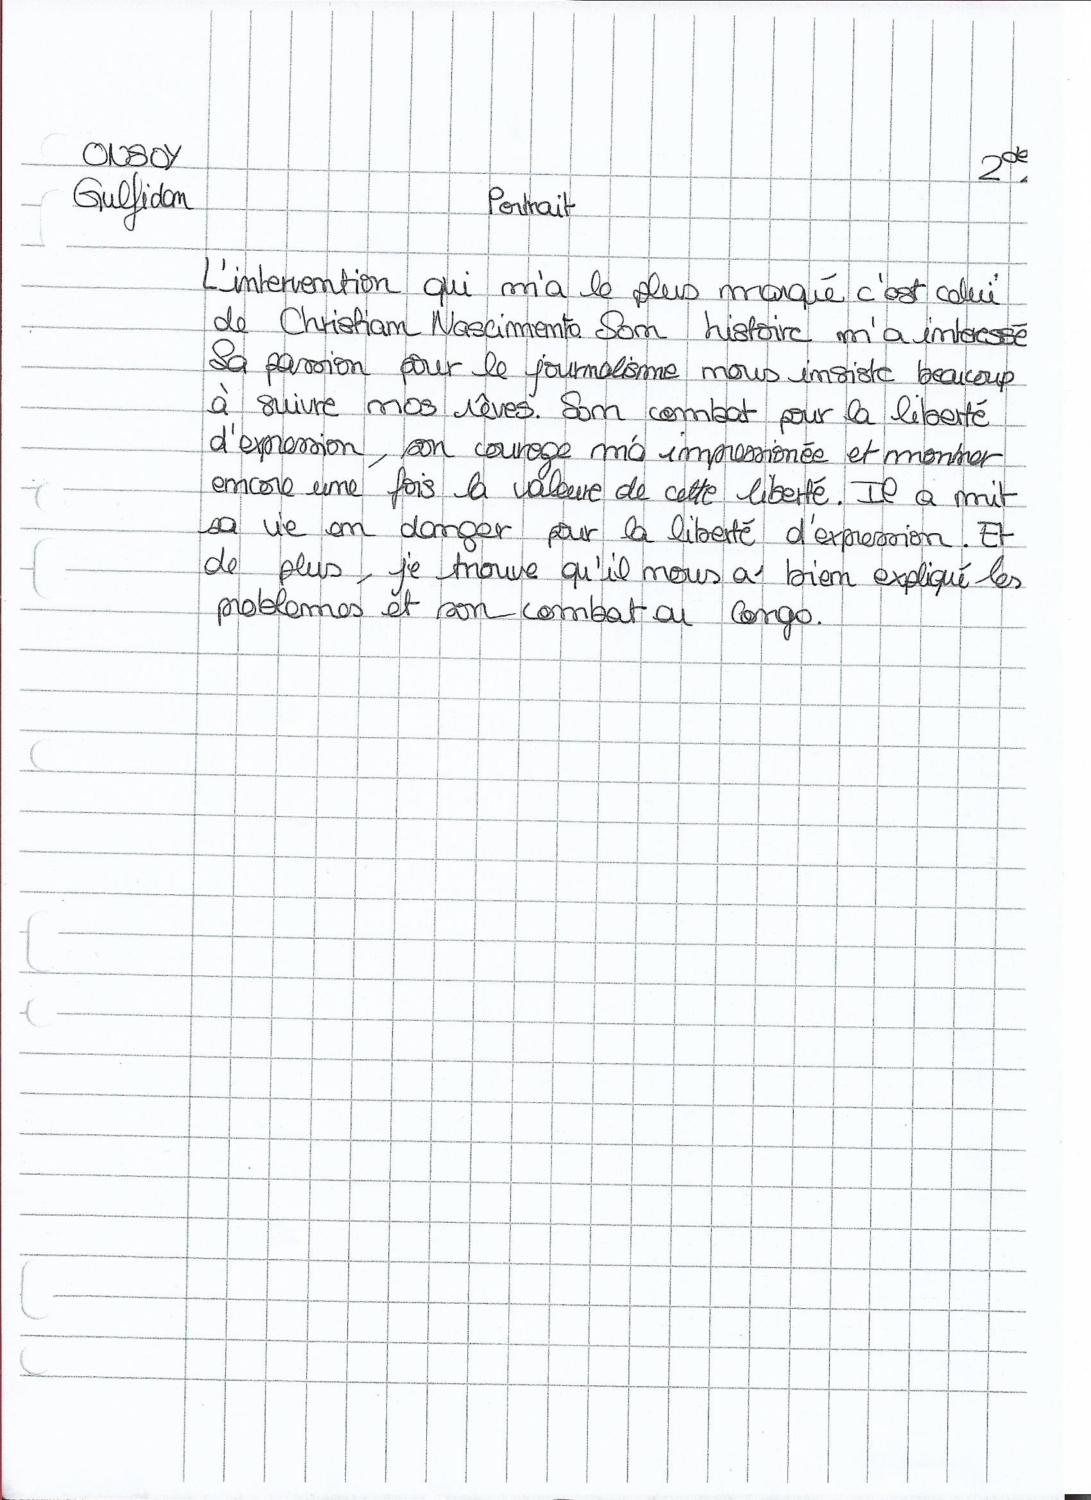 ONSOY
2de
Gulfidan
Portrait
L'intervention qui m'a le plus marqué c'est celui
de Christian Nascimento. Son histoire m'a interessé
Sa passion pour le journalisme nous insiste beaucoup
à suivre nos rêves. Son combat pour la liberté
d'expression, son courage m'a impressionée et montrer
encore une fois la valeure de cette liberté. Il a mit
sa vie en danger pour la liberté d'expression. Et
de plus, je trouve qu'il nous a bien expliqué les
problemes et son combat au Congo.